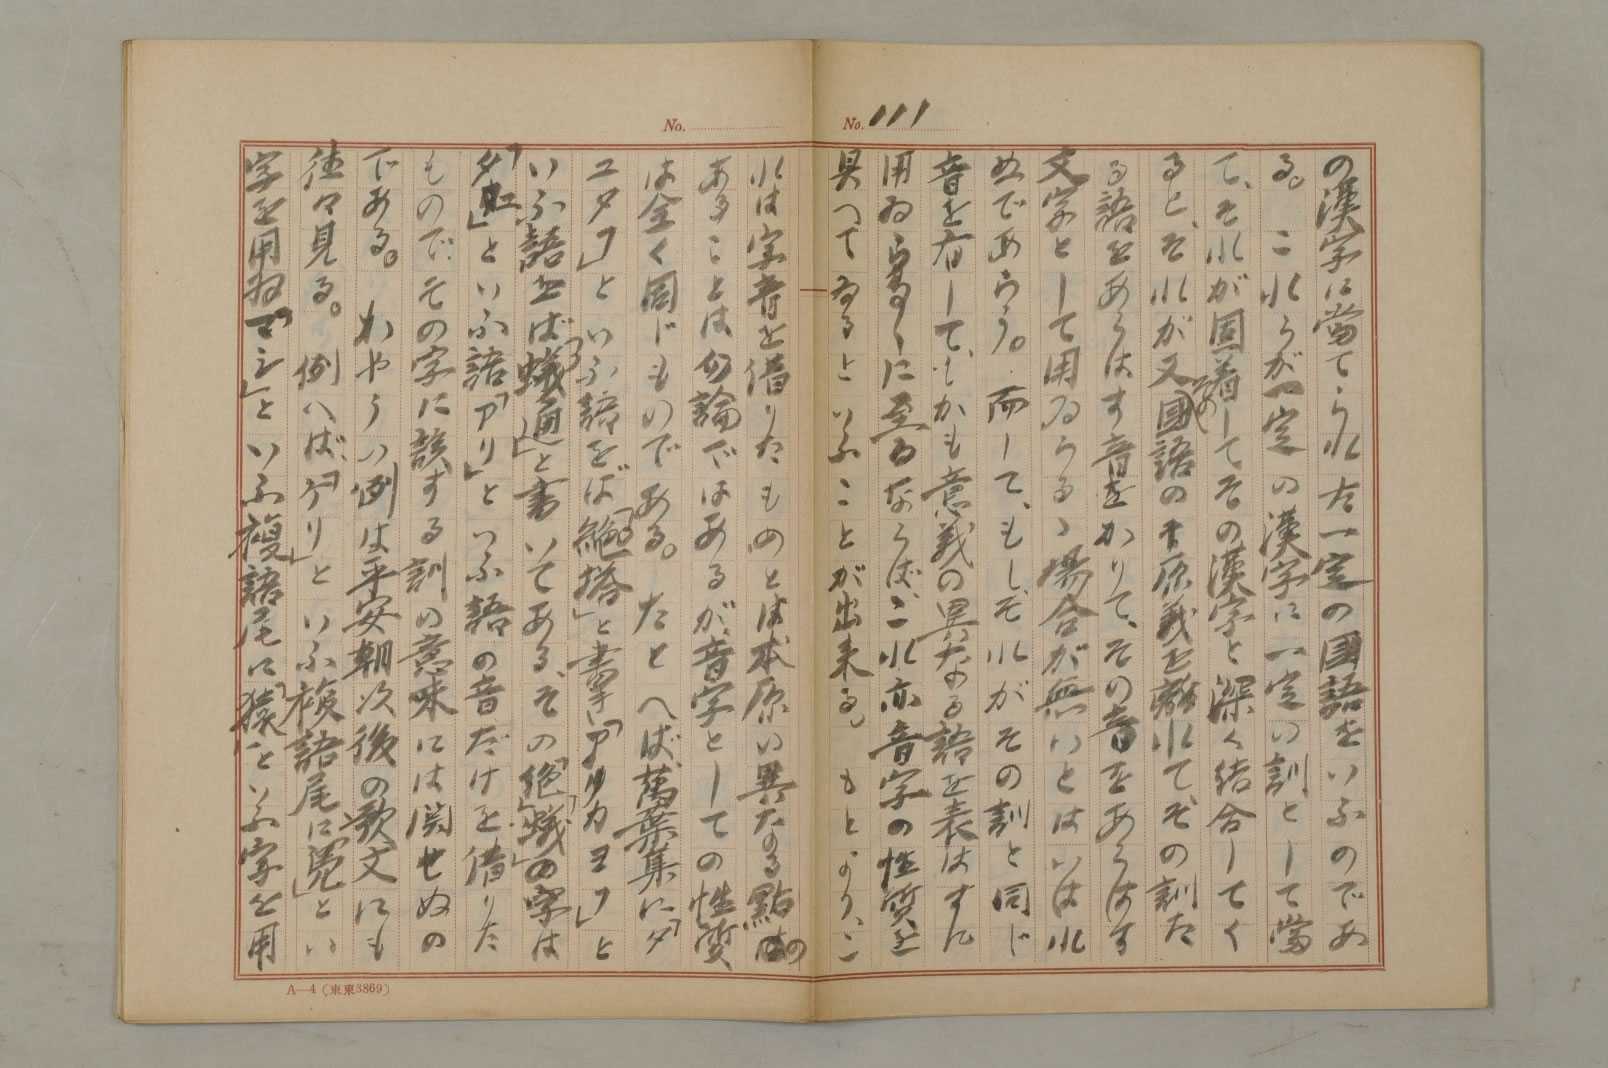 No. 111
の漢字に當てられた一定の國語をいふのであ
る。これらが一定の漢字に一定の訓として當
て、それが固着してその漢字と深く結合してく
ると、それが又國語の原義を離れてその訓た
る語をあらはす音をかりて、その音をあらはす
文字として用ゐらるゝ場合が無いとはいはれ
ぬであらう。而して、もしそれがその訓と同じ
音を有して、しかも意義の異なる語を表はすに
用ゐらるゝに至るならば、これ亦音字の性質を
具へてゐるといふことが出来る。もとより、こ
No.
れは字音を借りたものとは本原い異なる點の
あることは勿論ではあるが、音字としての性質
は全く同じものである。たとへば萬葉集に「タ
ユタフ」といふ語をば「絶塔」と書き、「アリカヨフ」と
いふ語をば「蟻通」と書いてある、その「絶」「蟻」の字は
「タユ」といふ語「アリ」といふ語の音だけを借りた
もので、その字に該する訓の意味には関せぬの
である。かやうい例は平安朝次後の歌文にも
往々見る。例へば、「ケリ」といふ複語尾に「鳧」とい
字を用ゐ「マシ」といふ複語尾に「猿」といふ字を用
A—4（東東3869）